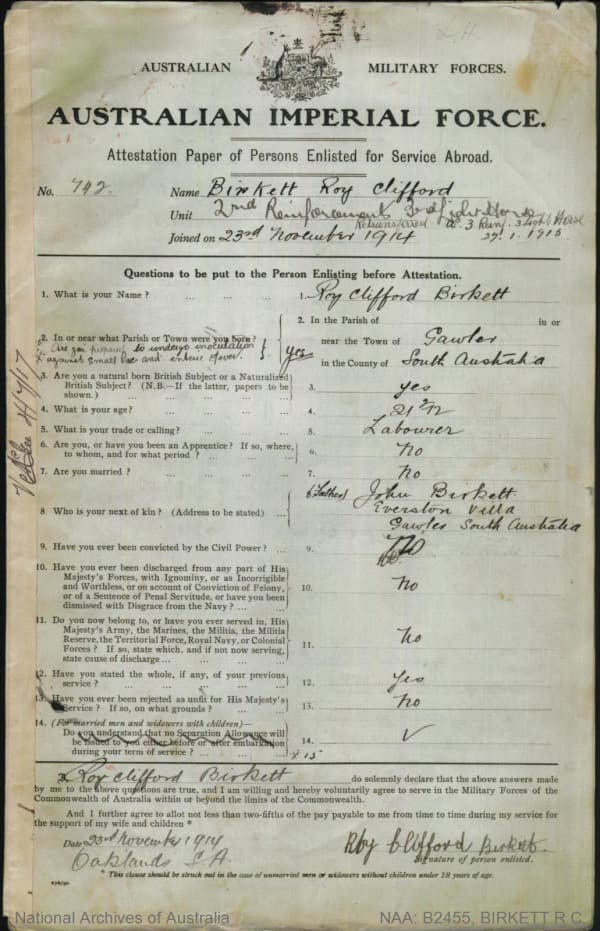 L.H.
AUSTRALIAN MILITARY FORCES.
AUSTRALIAN IMPERIAL FORCE.
Attestation Paper of Persons Enlisted for Service Abroad.
No. 742. Name Birkett Roy Clifford
Unit 2nd Reinforcements 3rd Light Horse
to 3 Reinf. 3 Light Horse
Joined on 23rd November 1914 27.1.1915
Questions to be put to the Person Enlisting before Attestation.
1. What is your Name? ... ... ... 1. Roy Clifford Birkett
2. In or near what Parish or Town were you born? 2. In the Parish of in or
near the Town of Gawler
in the County of South Australia
Are you prepared to undergo inoculation
against small pox and enteric fever. } yes
3. Are you a natural born British Subject or a Naturalized
British Subject? (N.B.—If the latter, papers to be
shown.) ... ... ... ... 3. yes
4. What is your age? ... ... ... ... 4. 21 2/12
5. What is your trade or calling? ... ... ... 5. Labourer
6. Are you, or have you been an Apprentice? If so, where,
to whom, and for what period? ... ... ... 6. No
7. Are you married? ... ... ... ... 7. No
8 Who is your next of kin? (Address to be stated) ... 8. (Father) John Birkett
Everston Villa
Gawler South Australia
9. Have you ever been convicted by the Civil Power? ... 9. No
No
10. Have you ever been discharged from any part of His
Majesty's Forces, with Ignominy, or as Incorrigible
and Worthless, or on account of Conviction of Felony,
or of a Sentence of Penal Servitude, or have you been
dismissed with Disgrace from the Navy? ... ... 10. No
11. Do you now belong to, or have you ever served in, His
Majesty's Army, the Marines, the Militia, the Militia
Reserve, the Territorial Force, Royal Navy, or Colonial
Forces? If so, state which, and if not now serving,
state cause of discharge ... ... ... 11. No
12. Have you stated the whole, if any, of your previous
service? ... ... ... ... 12. Yes
13. Have you ever been rejected as unfit for His Majesty's
Service? If so, on what grounds? ... ... 13. No
14. (For married men and widowers with children)—
Do you understand that no Separation Allowance will
be issued to you either before or after embarkation
during your term of service? ... ... 14. √
I, Roy Clifford Birkett do solemnly declare that the above answers made
by me to the above questions are true, and I am willing and hereby voluntarily agree to serve in the Military Forces of the
Commonwealth of Australia within or beyond the limits of the Commonwealth.
And I further agree to allot not less than two-fifths of the pay payable to me from time to time during my service for
the support of my wife and children *
Date 23rd November 1914 Roy Clifford Birkett.
Oaklands S.A. Signature of person enlisted.
* This clause should be struck out in the case of unmarried men or widowers without children under 18 years of age.
National Archives of Australia NAA: B2455, BIRKETT R C